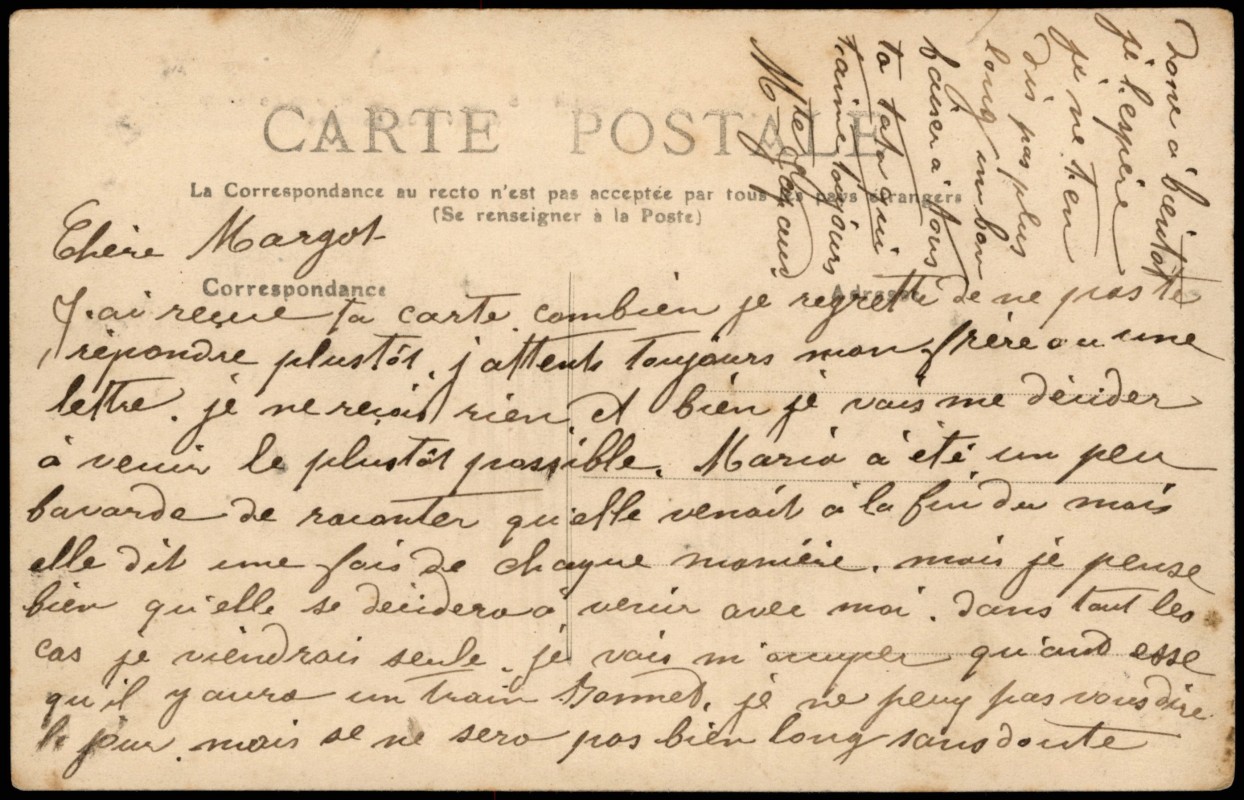 CARTE POSTALE
La Correspondance au recto n'est pas acceptée par tous les pays étrangers
(Se renseigner à la Poste)
Correspondance
Adresse
Chère Margot
J'ai reçue ta carte combien je regrette de ne pas te
répondre plustôt, j'attents toujours mon frére ou une
lettre. je ne reçois rien, et bien je vais me décider
à venir le plustôt possible. Maria à été un peu
bavarde de raconter qu'elle venait à la fin du mois
elle dit une fois de chaque maniére. mais je pense
bien qu'elle se décidera à venir avec moi. dans tout les
cas je viendrais seule. je vais m'occuper quand esse
qu'il y aura un train Bonnet, je ne peux pas vous dire
le jour. mais se ne sera pas bien long sans doute
Donc à bientôt
je l'espère
je ne t'en
dis pas plus
long un bon
baiser à tous
ta tata qui
t'aime toujours